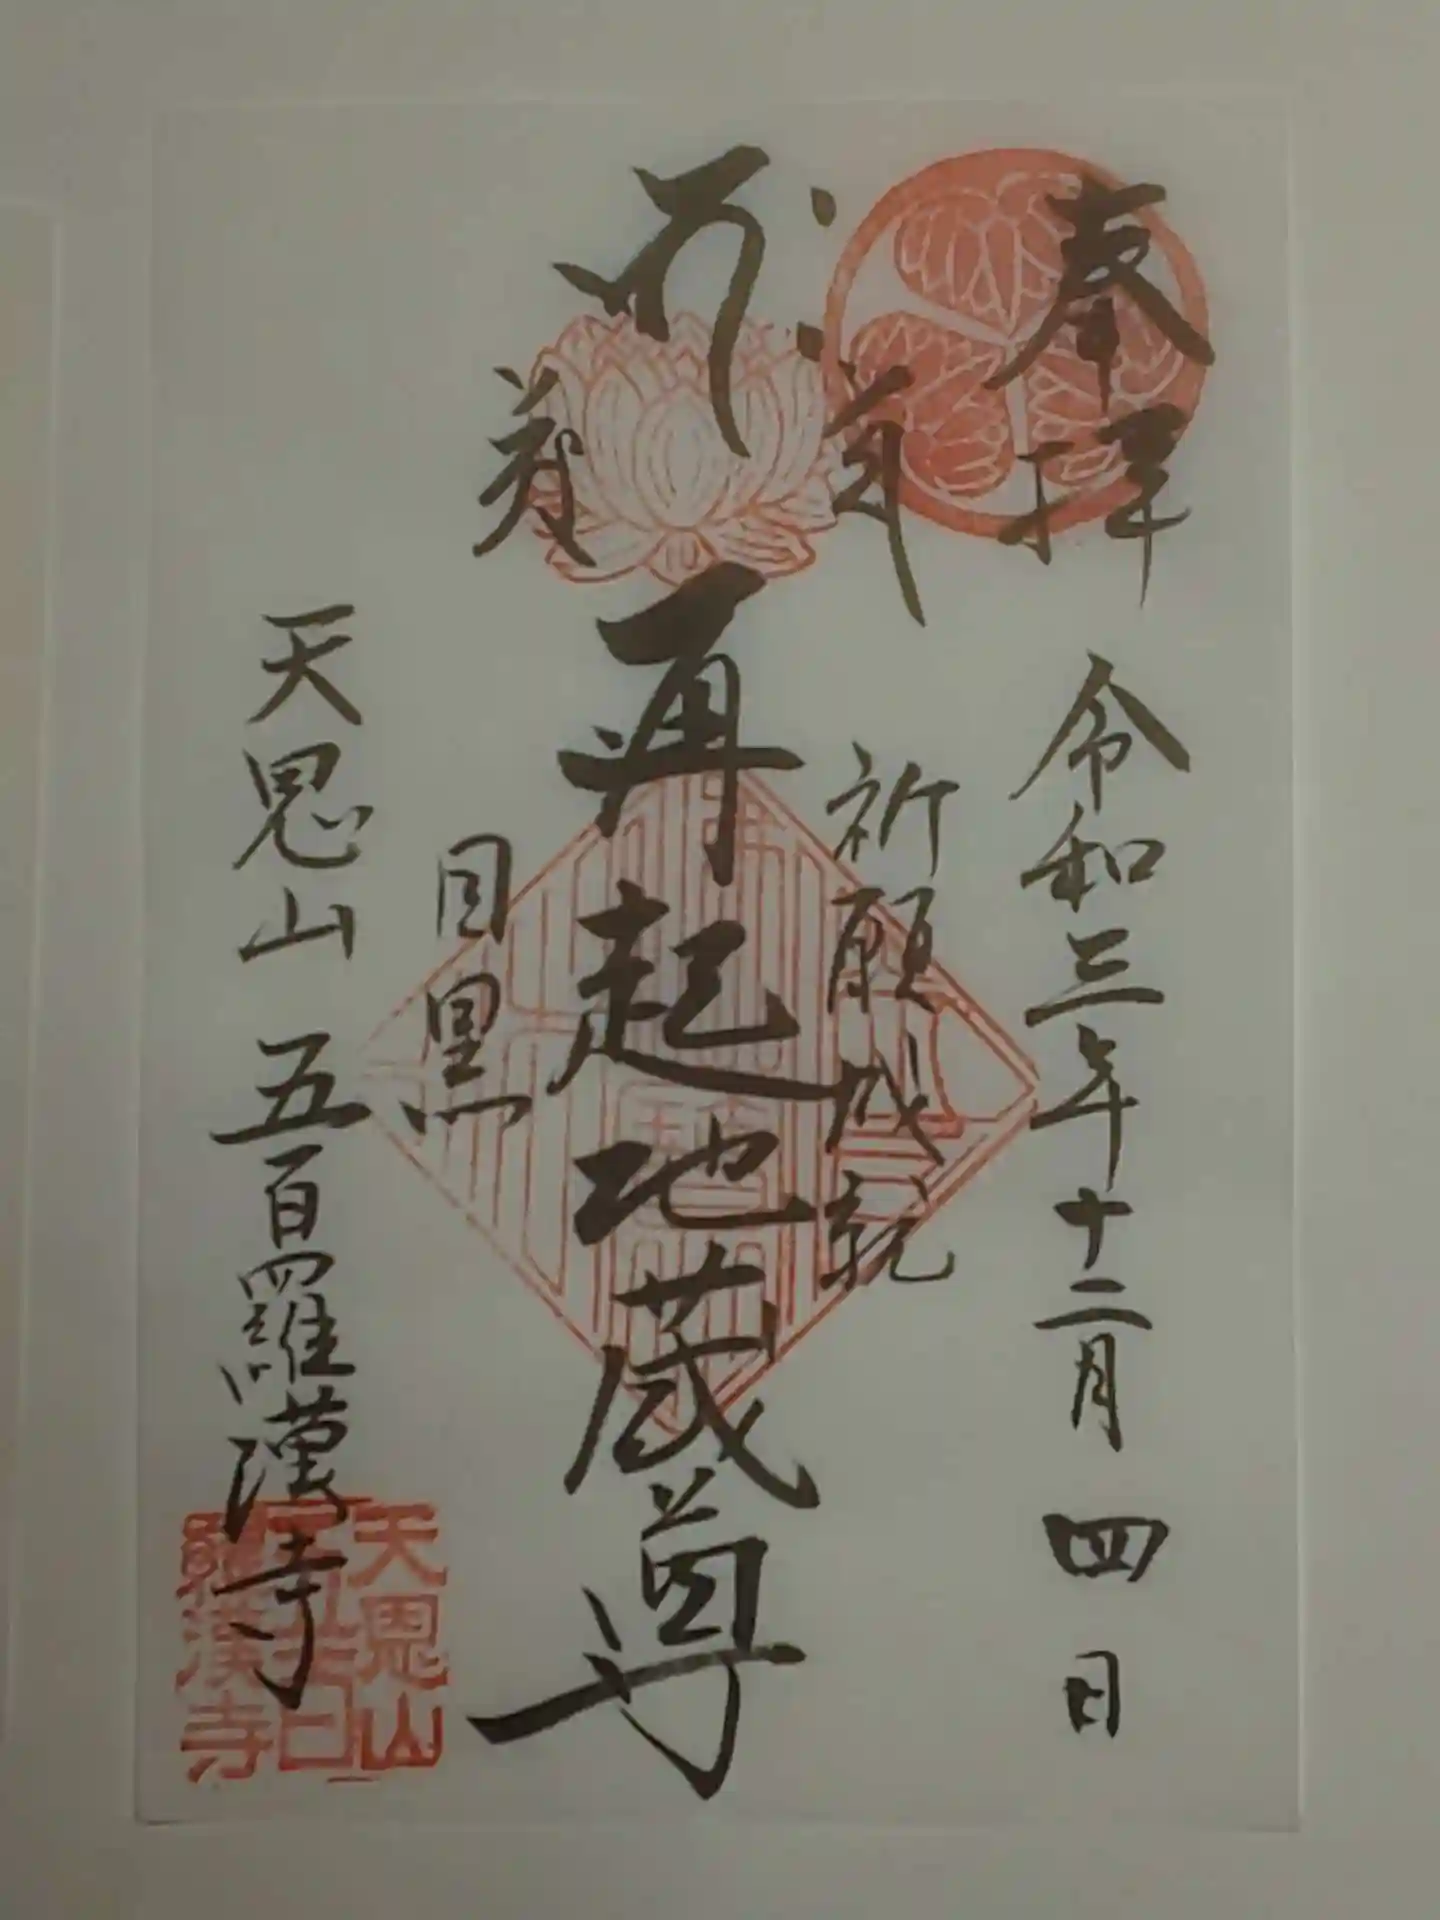 奉拝
令和三年十二月四日
祈願成就
再起地蔵尊
目黒
天恩山 五百羅漢寺
天恩山
五百
羅漢寺